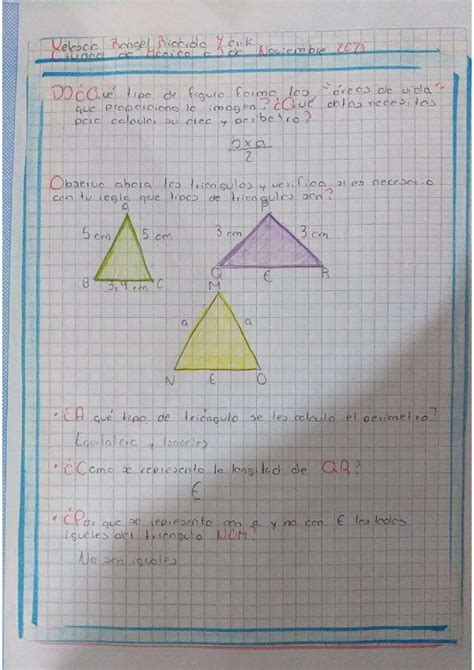 Velasco Rangel Ricardo Yerik
Ciudad de Mexico a 3 de Noviembre 2021
¿Qué tipo de figura forma las "áreas de vida"
que proporciona la imagen? ¿Qué datos necesitas
para calcular su area y perimetro?
bxa
2
Observa ahora los triangulos y verifica si es necesario
con tu regla que tipos de triangulos son?
A
5 cm
5 cm
B
3,4 cm
C
P
3 cm
3 cm
Q
E
R
M
a
a
N
E
O
• ¿A qué tipo de triángulo se les calcula el perimetro?
Equilatero y Isoceles
• ¿Como se representa la longitud de QR?
E
• ¿Por que se representa con a y no con E los lados
iguales del triangulo NOM?
No son iguales